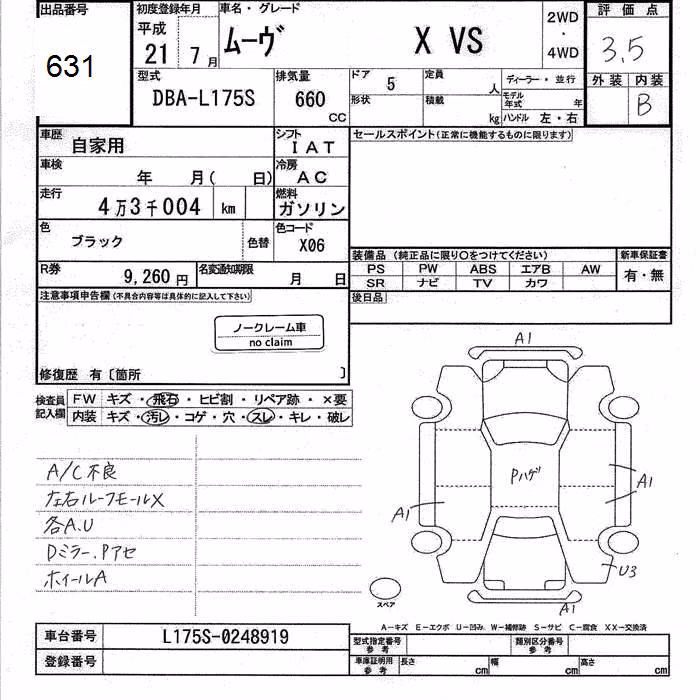 出品番号
631
初度登録年月
平成
21 7月
車名・グレード
ムーヴ X VS
2WD
・
4WD
評価点
3.5
外装 内装
B
型式
DBA-L175S
排気量
660
CC
ドア 5
形状
定員 人
積載 kg
ディーラー・並行
モデル年式 年
ハンドル 左・右
車歴
自家用
シフト
IAT
セールスポイント(正常に機能するものに限ります)
車検
年 月( 日)
冷房
AC
走行
4万3千004 km
燃料
ガソリン
色
ブラック
色替
色コード
X06
装備品 (純正品に限り○をつけてください)
新車保証書
PS PW ABS エアB AW
有・無
SR ナビ TV カワ
R券
9,260円
名変通知期限
月 日
後日品
注意事項申告欄(不具合内容等は具体的に記入して下さい)
ノークレーム車
no claim
修復歴 有〔箇所 〕
検査員
記入欄
FW キズ・飛石・ヒビ割・リペア跡・×要
内装 キズ・汚レ・コゲ・穴・スレ・キレ・破レ
A/C不良
左右ルーフモールX
各A.U
Dミラー.Pアセ
ホイールA
A1
Pハゲ
A1
A1
U3
A1
スペア
A-キズ E-エクボ U-凹み W-補修跡 S-サビ C-腐食 XX-交換済
車台番号
L175S-0248919
登録番号
型式指定番号
参考
類別区分番号
参考
車庫証明用
参考
長さ cm
幅 cm
高さ cm